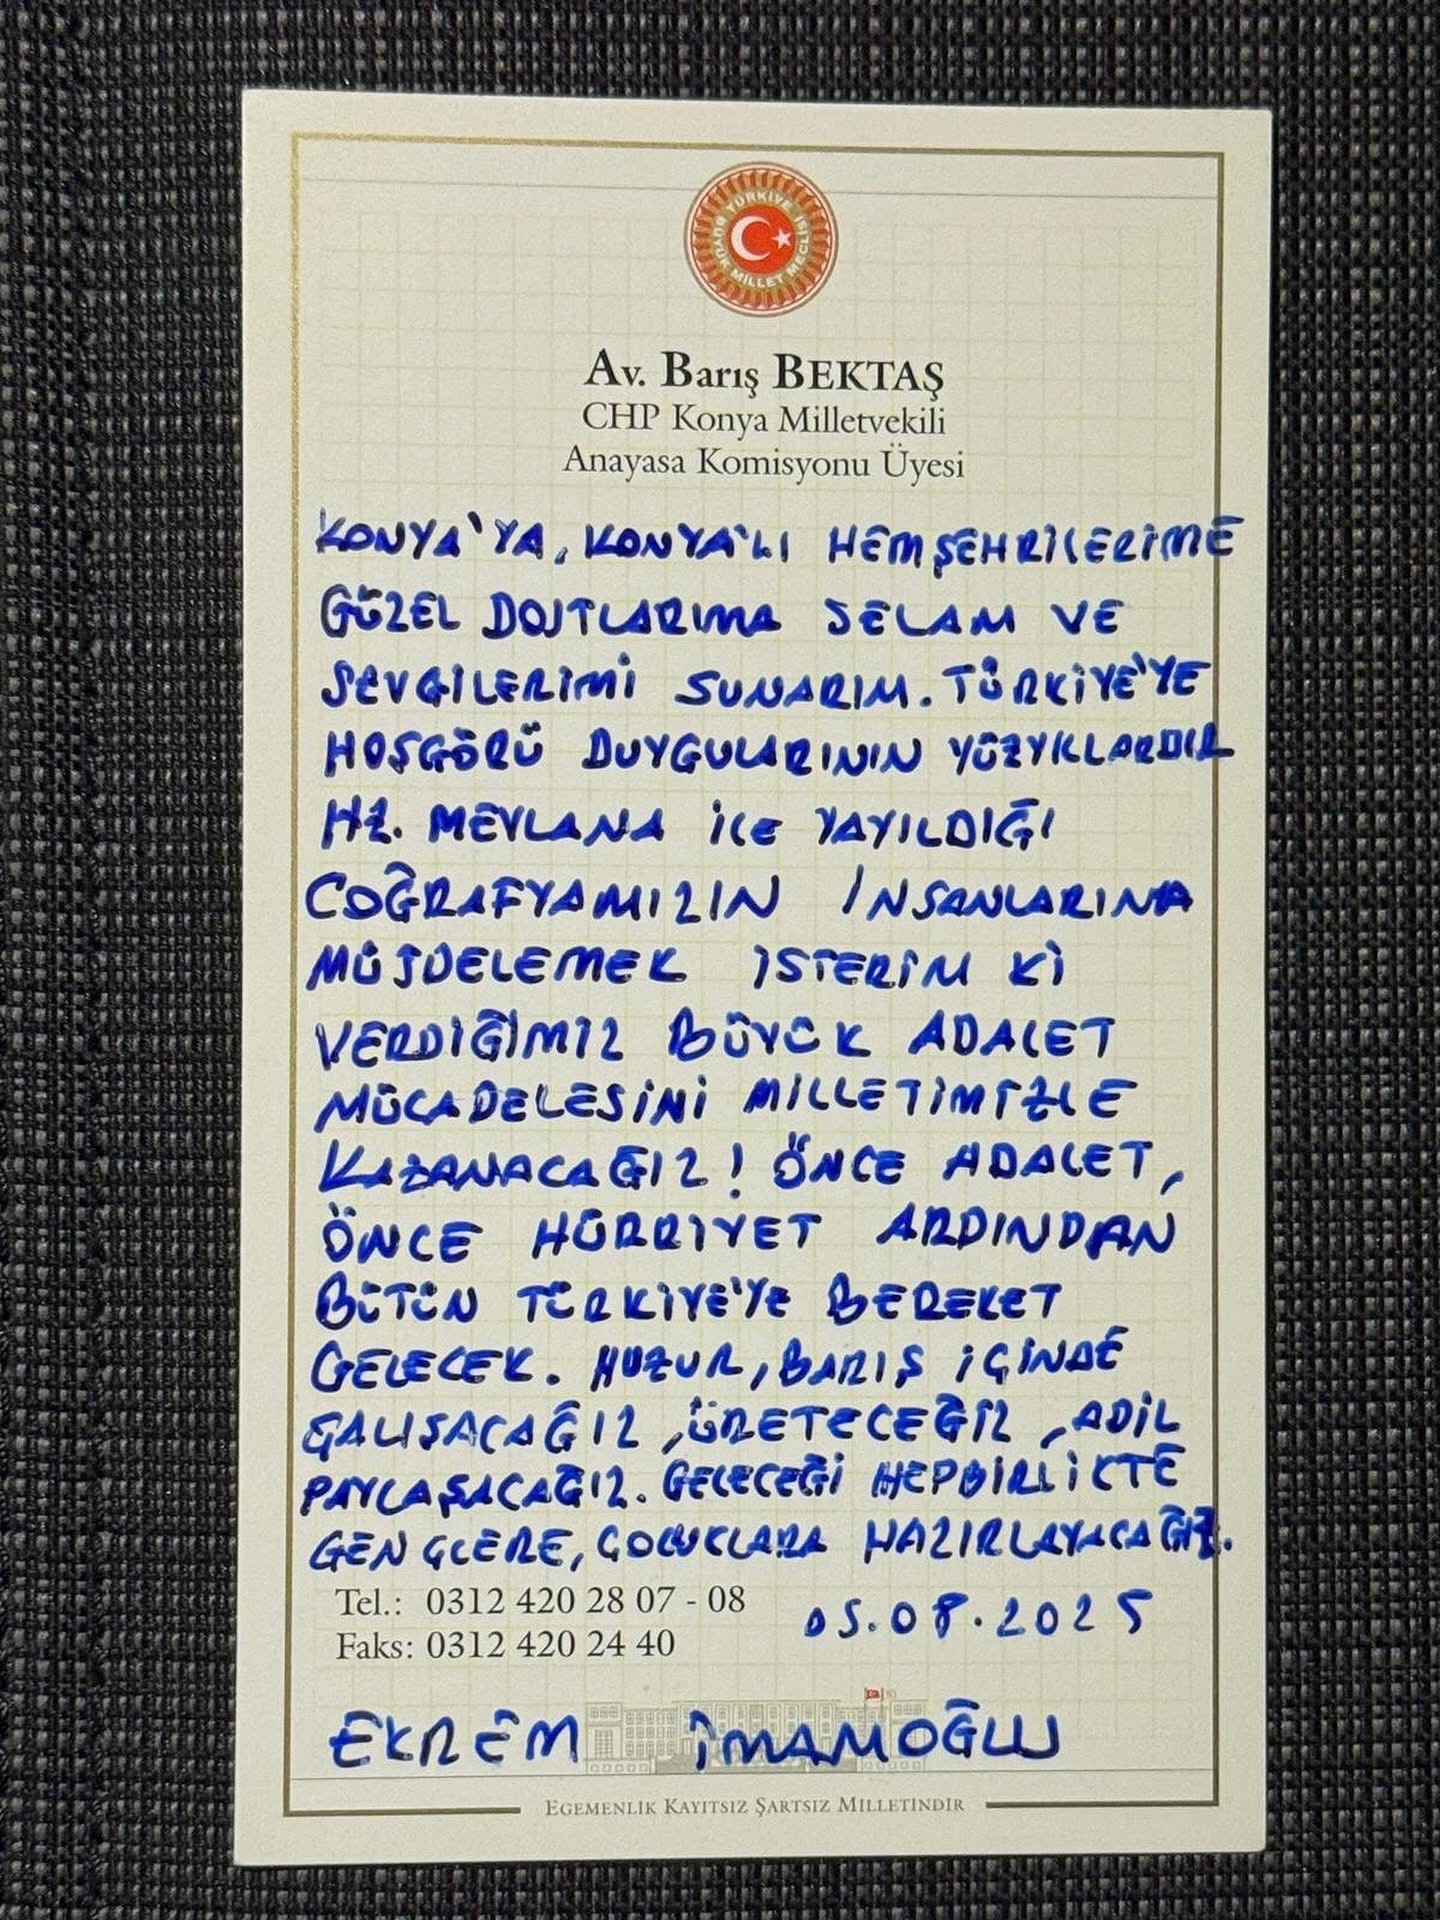 TÜRKİYE BÜYÜK MİLLET MECLİSİ
Av. Barış BEKTAŞ
CHP Konya Milletvekili
Anayasa Komisyonu Üyesi
KONYA'YA, KONYA'LI HEMŞEHRİLERİME
GÜZEL DOSTLARIMA SELAM VE
SEVGİLERİMİ SUNARIM. TÜRKİYE'YE
HOŞGÖRÜ DUYGULARININ YÜZYILLARDIR
HZ. MEVLANA İLE YAYILDIĞI
COĞRAFYAMIZIN İNSANLARINA
MÜJDELEMEK İSTERİM Kİ
VERDİĞİMİZ BÜYÜK ADALET
MÜCADELESİNİ MİLLETİMİZLE
KAZANACAĞIZ! ÖNCE ADALET,
ÖNCE HÜRRİYET ARDINDAN
BÜTÜN TÜRKİYE'YE BEREKET
GELECEK. HUZUR, BARIŞ İÇİNDE
ÇALIŞACAĞIZ, ÜRETECEĞİZ, ADİL
PAYLAŞACAĞIZ. GELECEĞİ HEPBİRLİKTE
GENÇLERE, ÇOCUKLARA HAZIRLAYACAĞIZ.
Tel.: 0312 420 28 07 - 08
05.08.2025
Faks: 0312 420 24 40
EKREM İMAMOĞLU
EGEMENLİK KAYITSIZ ŞARTSIZ MİLLETİNDİR